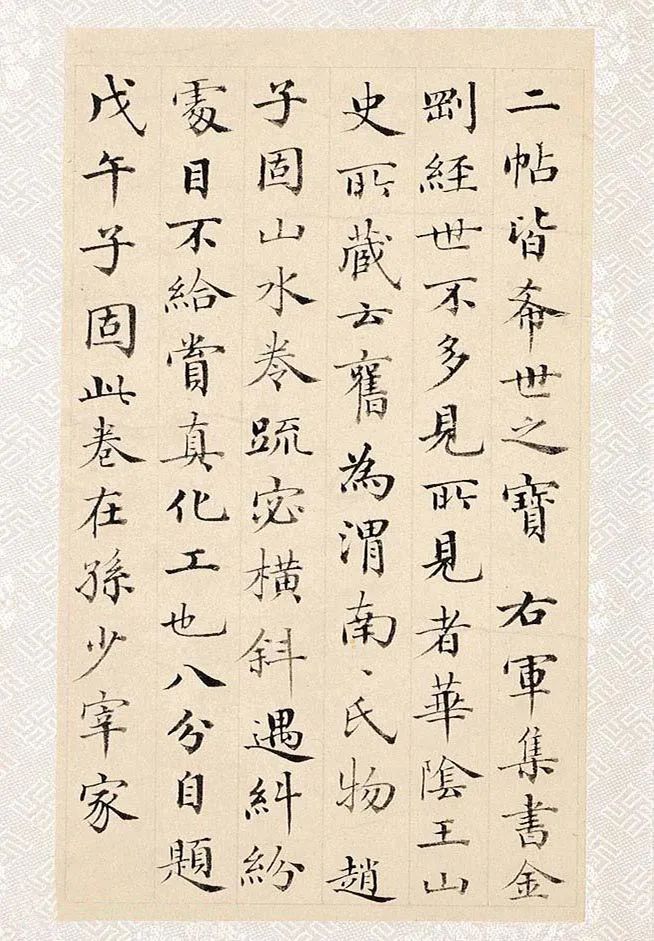 二帖皆希世之寶 右軍集書金
剛經世不多見所見者華陰王山
史所藏云舊為渭南〻氏物 趙
子固山水卷疏宻橫斜遇糾紛
處目不給賞真化工也八分自題
戊午子固此卷在孫少宰家